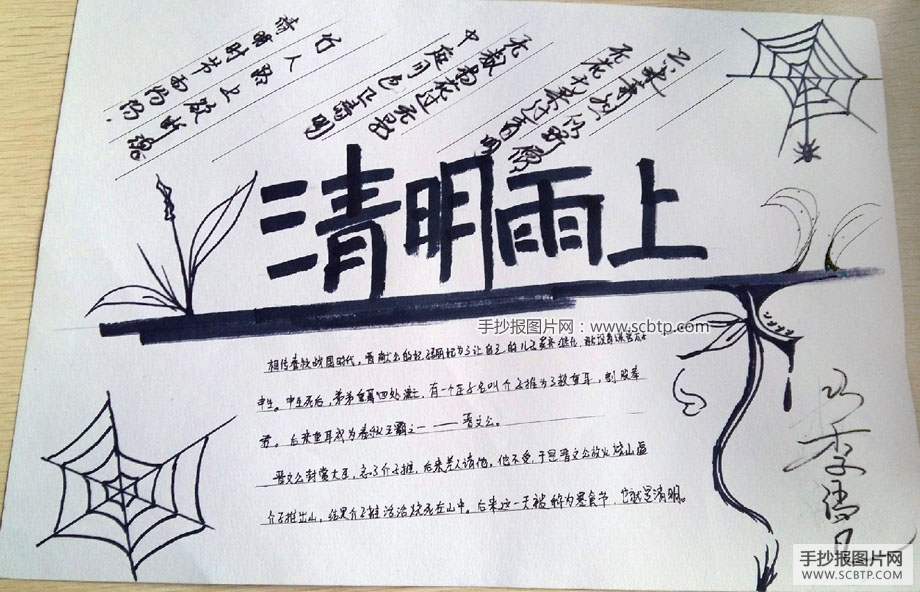 清明时节雨纷纷.
行人路上欲断魂
中庭月色正清明
无数杨花过无影
无花无酒过清明
萧然似野僧
清明雨上
手抄报图片网：www.scbtp.com
相传春秋战国时代，晋献公的妃骊姬为了让自己的儿子奚齐继位，就设毒谋害太子
申生。申生死后，弟弟重耳四处流亡，有一个臣子名叫介子推为了救重耳，割股奉
君。后来重耳成为春秋五霸之一——晋文公。
晋文公封赏大臣，忘了介子推，后来差人请他，他不受，于是晋文公放火烧山逼
介子推出山，结果介子推活活烧死在山中。后来这一天被称为寒食节，也就是清明。
手抄报图片网
WWW.SCBTP.COM